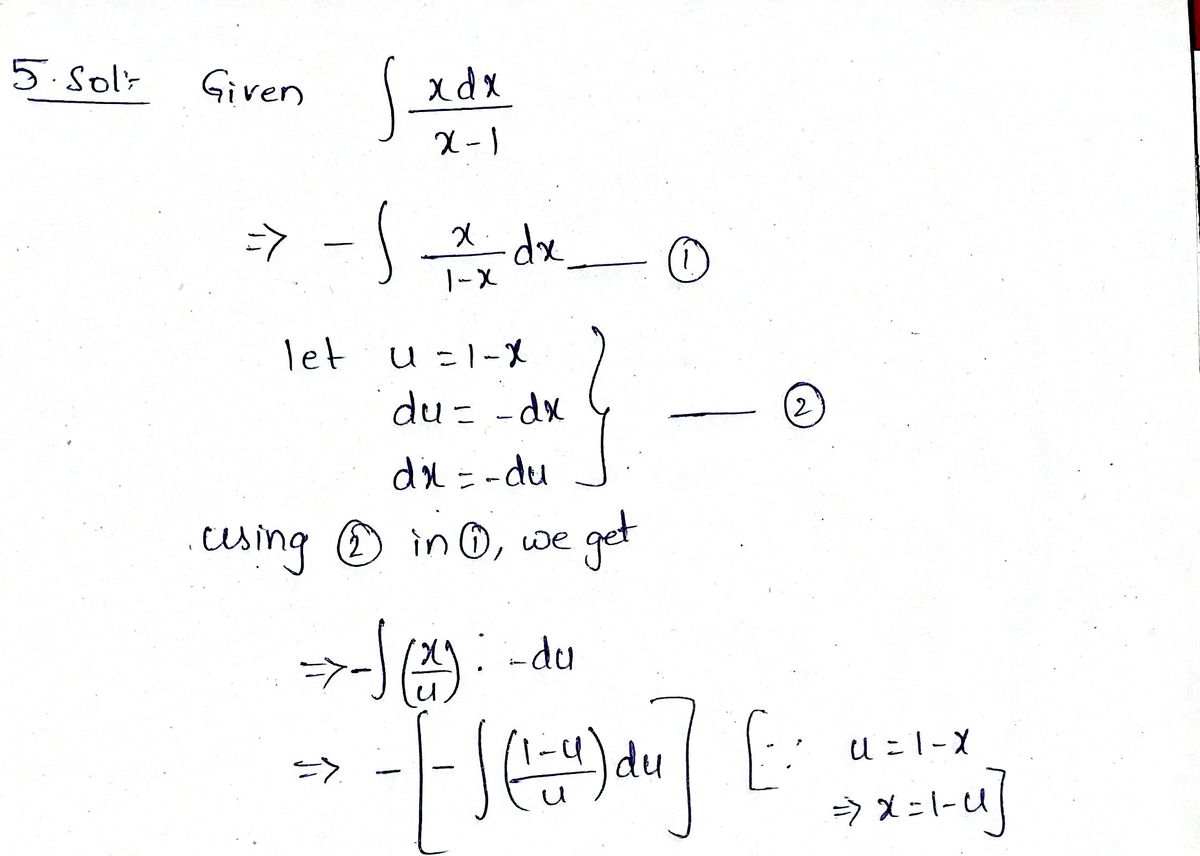 5. Sol:- Given ∫ xdx / x-1
=> - ∫ x / 1-x dx — ①
let u = 1-x
du = -dx — ②
dx = -du
using ② in ①, we get
=> - ∫ (x/u) . -du
=> - [ - ∫ (1-u / u) du ] [∵ u = 1-x
=> x = 1-u]